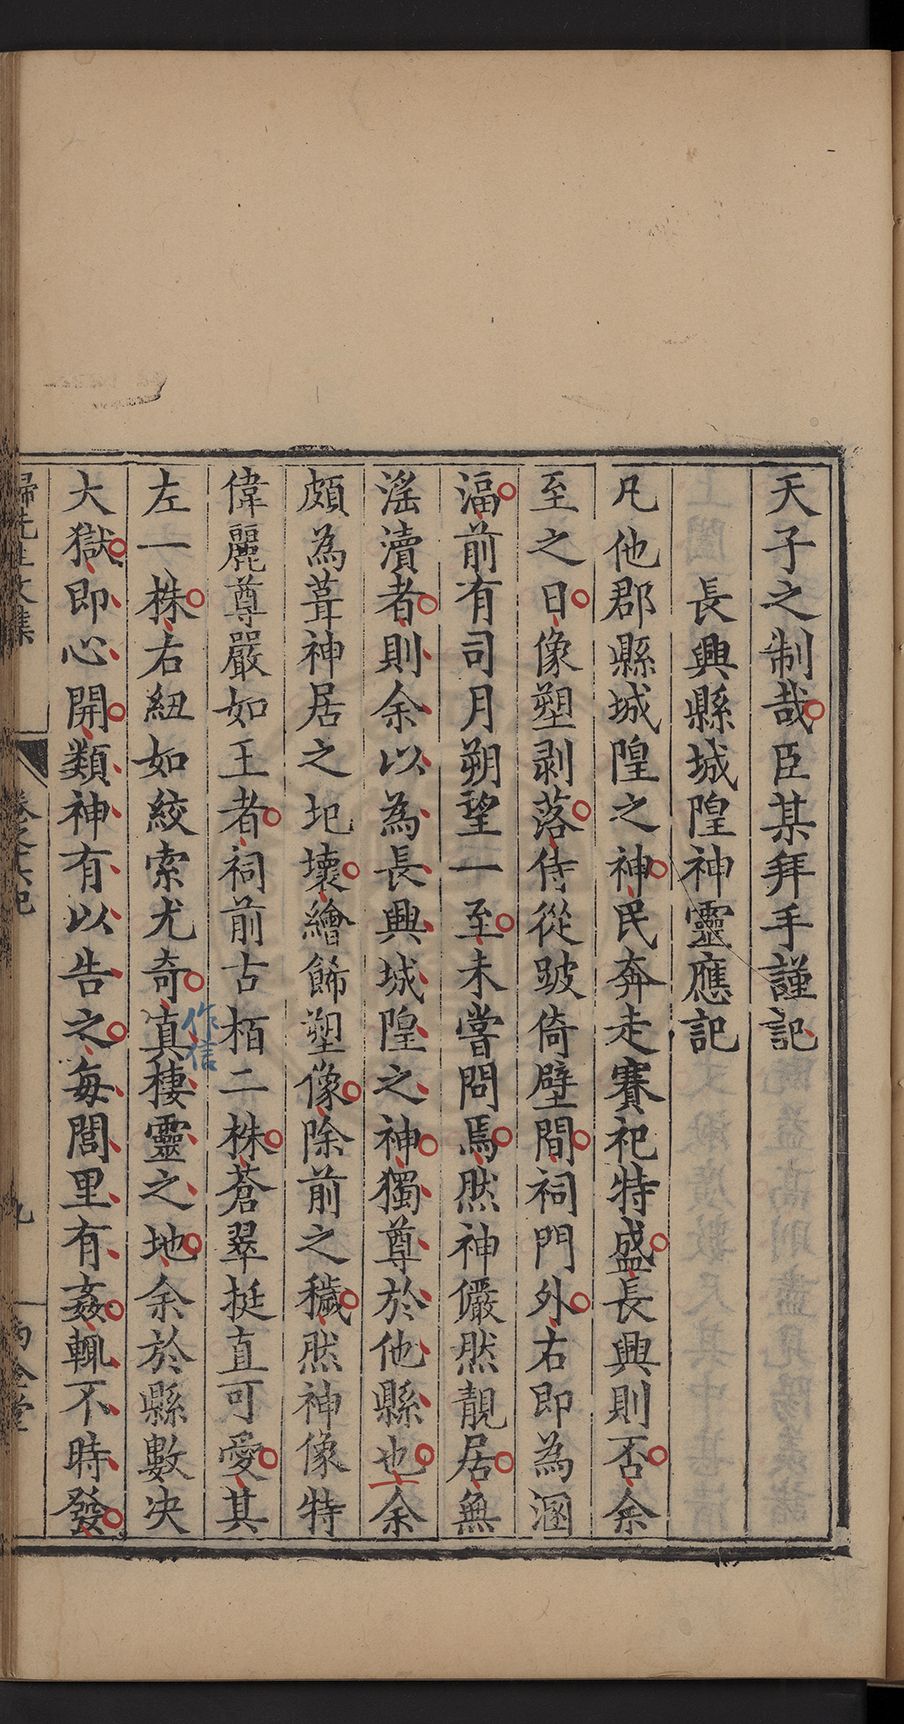 天子之制哉臣某拜手謹記
長興縣城隍神靈應記
凡他郡縣城隍之神民奔走賽祀特盛長興則否余
至之日像塑剥落侍從跛倚壁間祠門外右即為溷
湢前有司月朔望一至未嘗問焉然神儼然靚居無
滛瀆者則余以為長興城隍之神獨尊於他縣也余
頗為葺神居之圮壞繪餙塑像除前之穢然神像特
偉麗尊嚴如王者祠前古栢二株蒼翠挺直可愛其
左一株右紐如絞索尤奇真棲靈之地余於縣數决
作信
大獄即心開類神有以告之每閭里有姦輒不時發